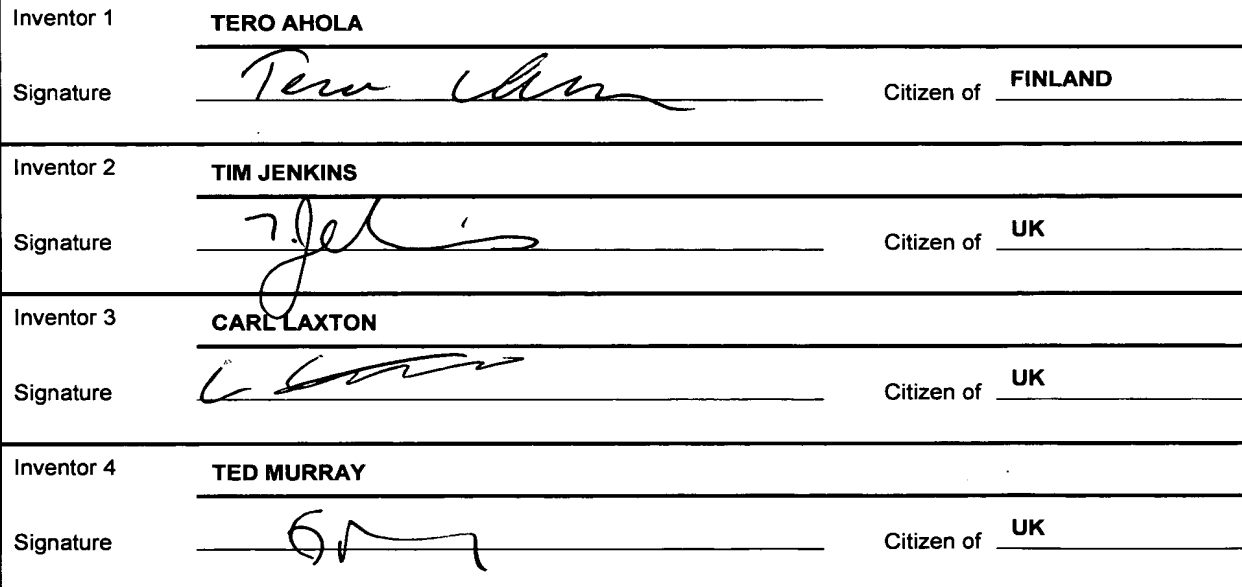 Inventor 1 TERO AHOLA
Signature Tero Citizen of FINLAND
Inventor 2 TIM JENKINS
Signature T. Jenkins Citizen of UK
Inventor 3 CARL LAXTON
Signature Citizen of UK
Inventor 4 TED MURRAY
Signature Citizen of UK